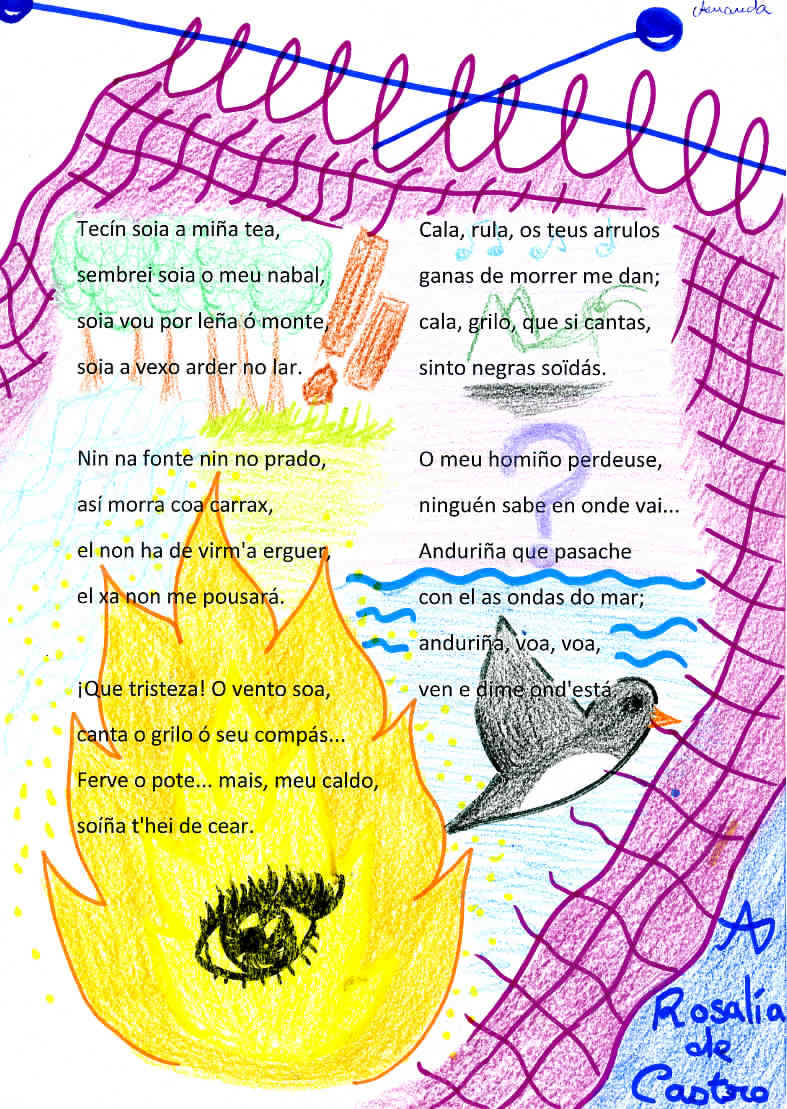 Tecín soia a miña tea,
sembrei soia o meu nabal,
soia vou por leña ó monte,
soia a vexo arder no lar.
Nin na fonte nin no prado,
así morra coa carrax,
el non ha de virm'a erguer,
el xa non me pousará.
¡Que tristeza! O vento soa,
canta o grilo ó seu compás...
Ferve o pote... mais, meu caldo,
soíña t'hei de cear.
Cala, rula, os teus arrulos
ganas de morrer me dan;
cala, grilo, que si cantas,
sinto negras soïdás.
O meu homiño perdeuse,
ninguén sabe en onde vai...
Anduriña que pasache
con el as ondas do mar;
anduriña, voa, voa,
ven e dime ond'está
A
Rosalía
de
Castro